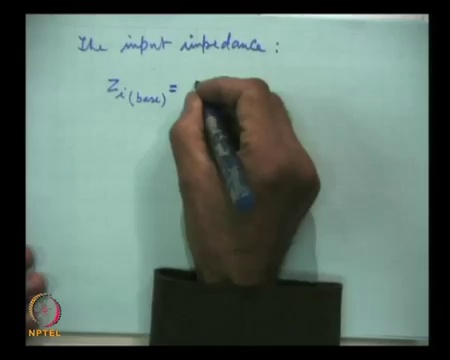 The input impedance :
Zi(base) =
NPTEL